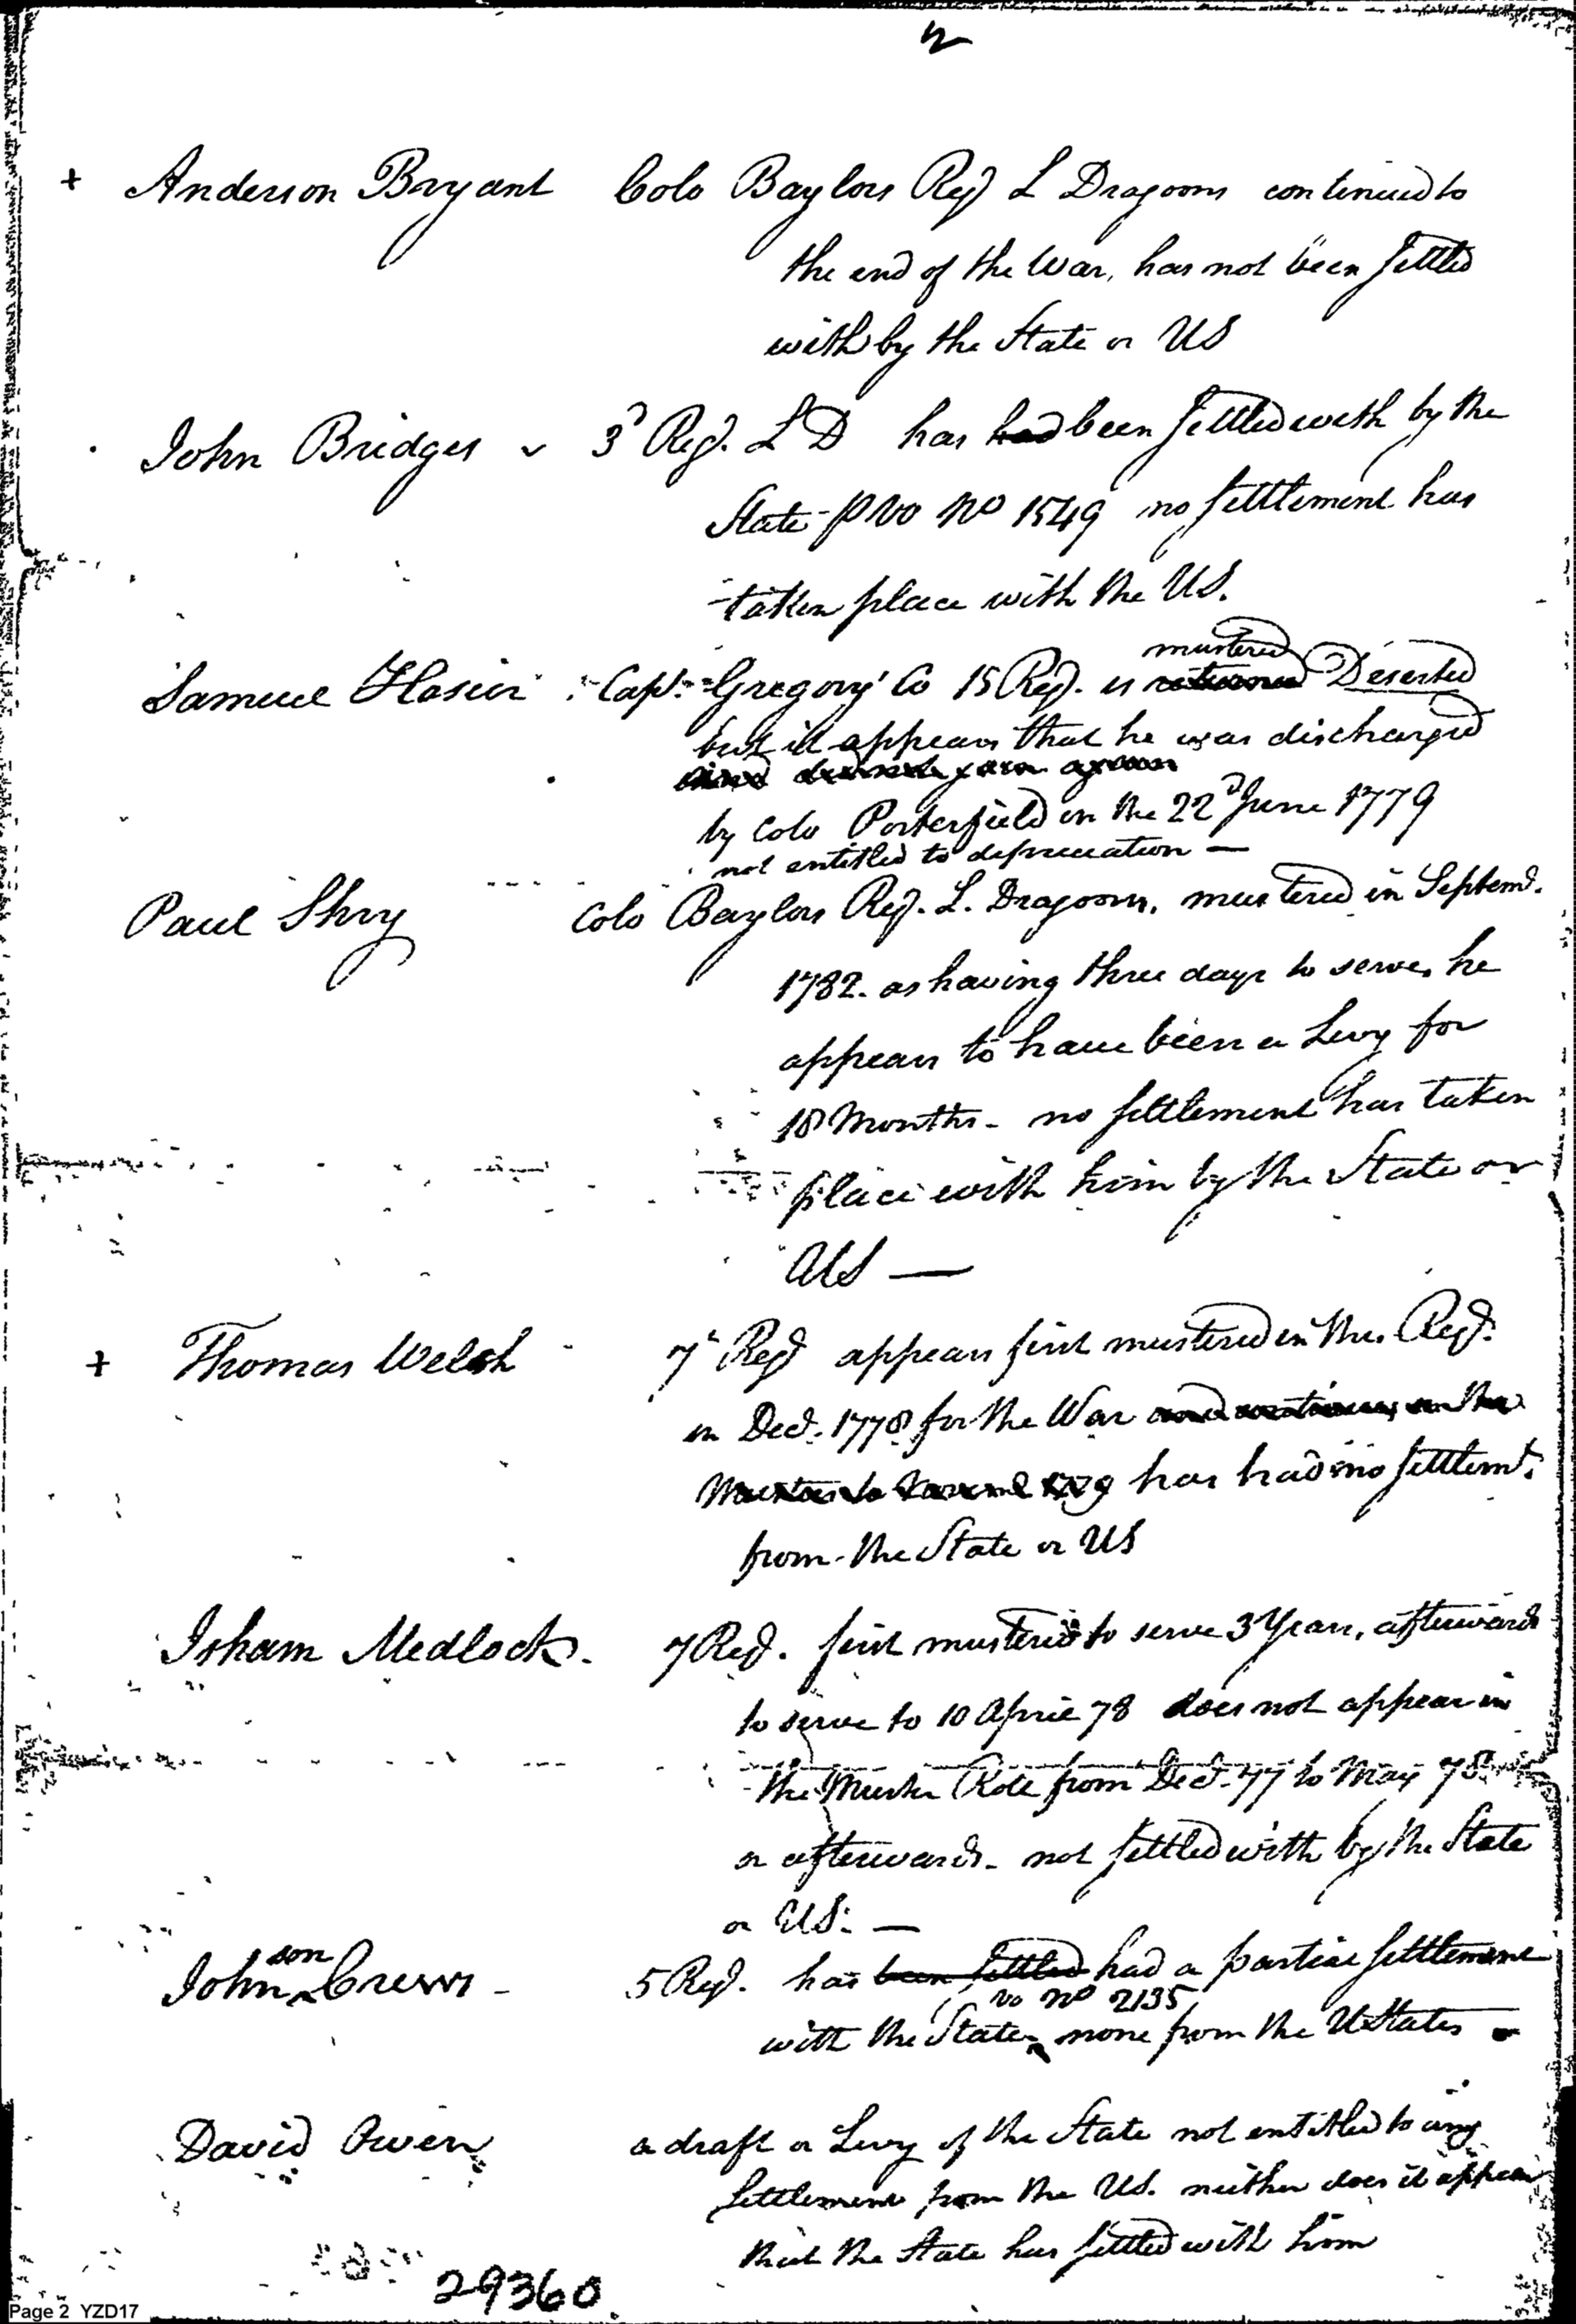 2
+ Anderson Bryant Colo Baylors Regt L Dragoons continued to
the end of the War, has not been settled
with by the State or US
John Bridges 3d Regt. L D has had been settled with by the
State p Vo No 1549 no settlement has
taken place with the US.
mustered
Samuel Hosier Capt. Gregory' Co 15 Regt. is returned Deserted
but it appears that he was discharged
by Colo Porterfield on the 22d June 1779
not entitled to depreciation —
Paul Shry Colo Baylors Regt. L. Dragoons, mustered in Septemr.
1782. as having three days to serve, he
appears to have been a Levy for
18 Months - no settlement has taken
place with him by the State or
US —
+ Thomas Welsh 7h Regt appears first mustered in this Regt.
in Decr. 1778 for the War and continues on the
has had no settlemt.
from the State or US
Isham Medlock. 7 Regt. first mustered to serve 3 Years, afterwards
to serve to 10 April 78 does not appear in
the Muster Role from Decr. 77 to May 78
or afterwards - not settled with by the State
or US. —
son
John Crews - 5 Regt. has been settled had a partial settlement
vo no 2135
with the State, none from the U States -
David Owen a draft or Levy of the State not entitled to any
settlement from the US. neither does it appear
that the State has settled with him
29360
Page 2 YZD17